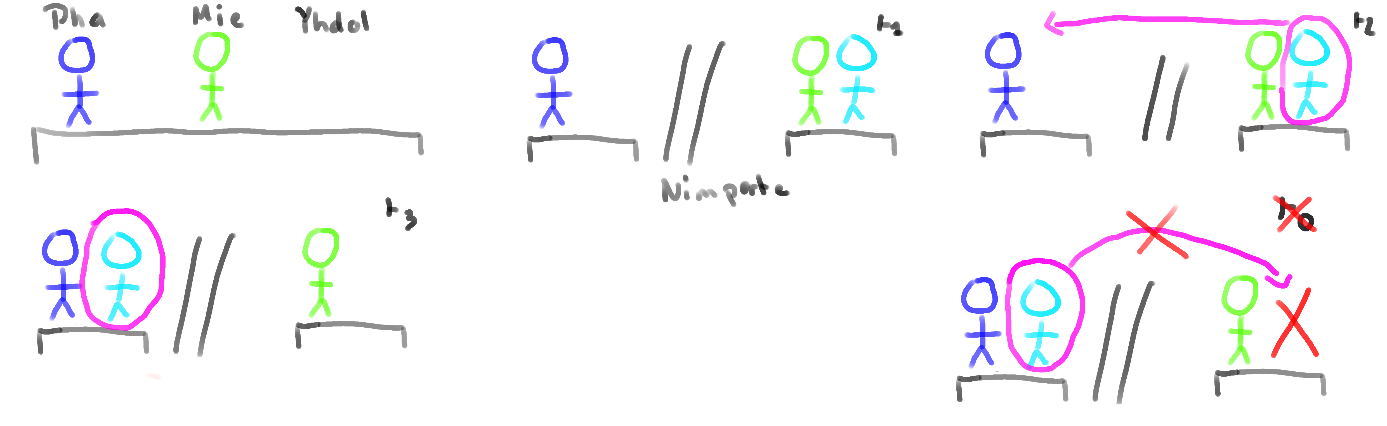 Pha Mie Yhdol
t1
t2
Nimporte
t3
t0